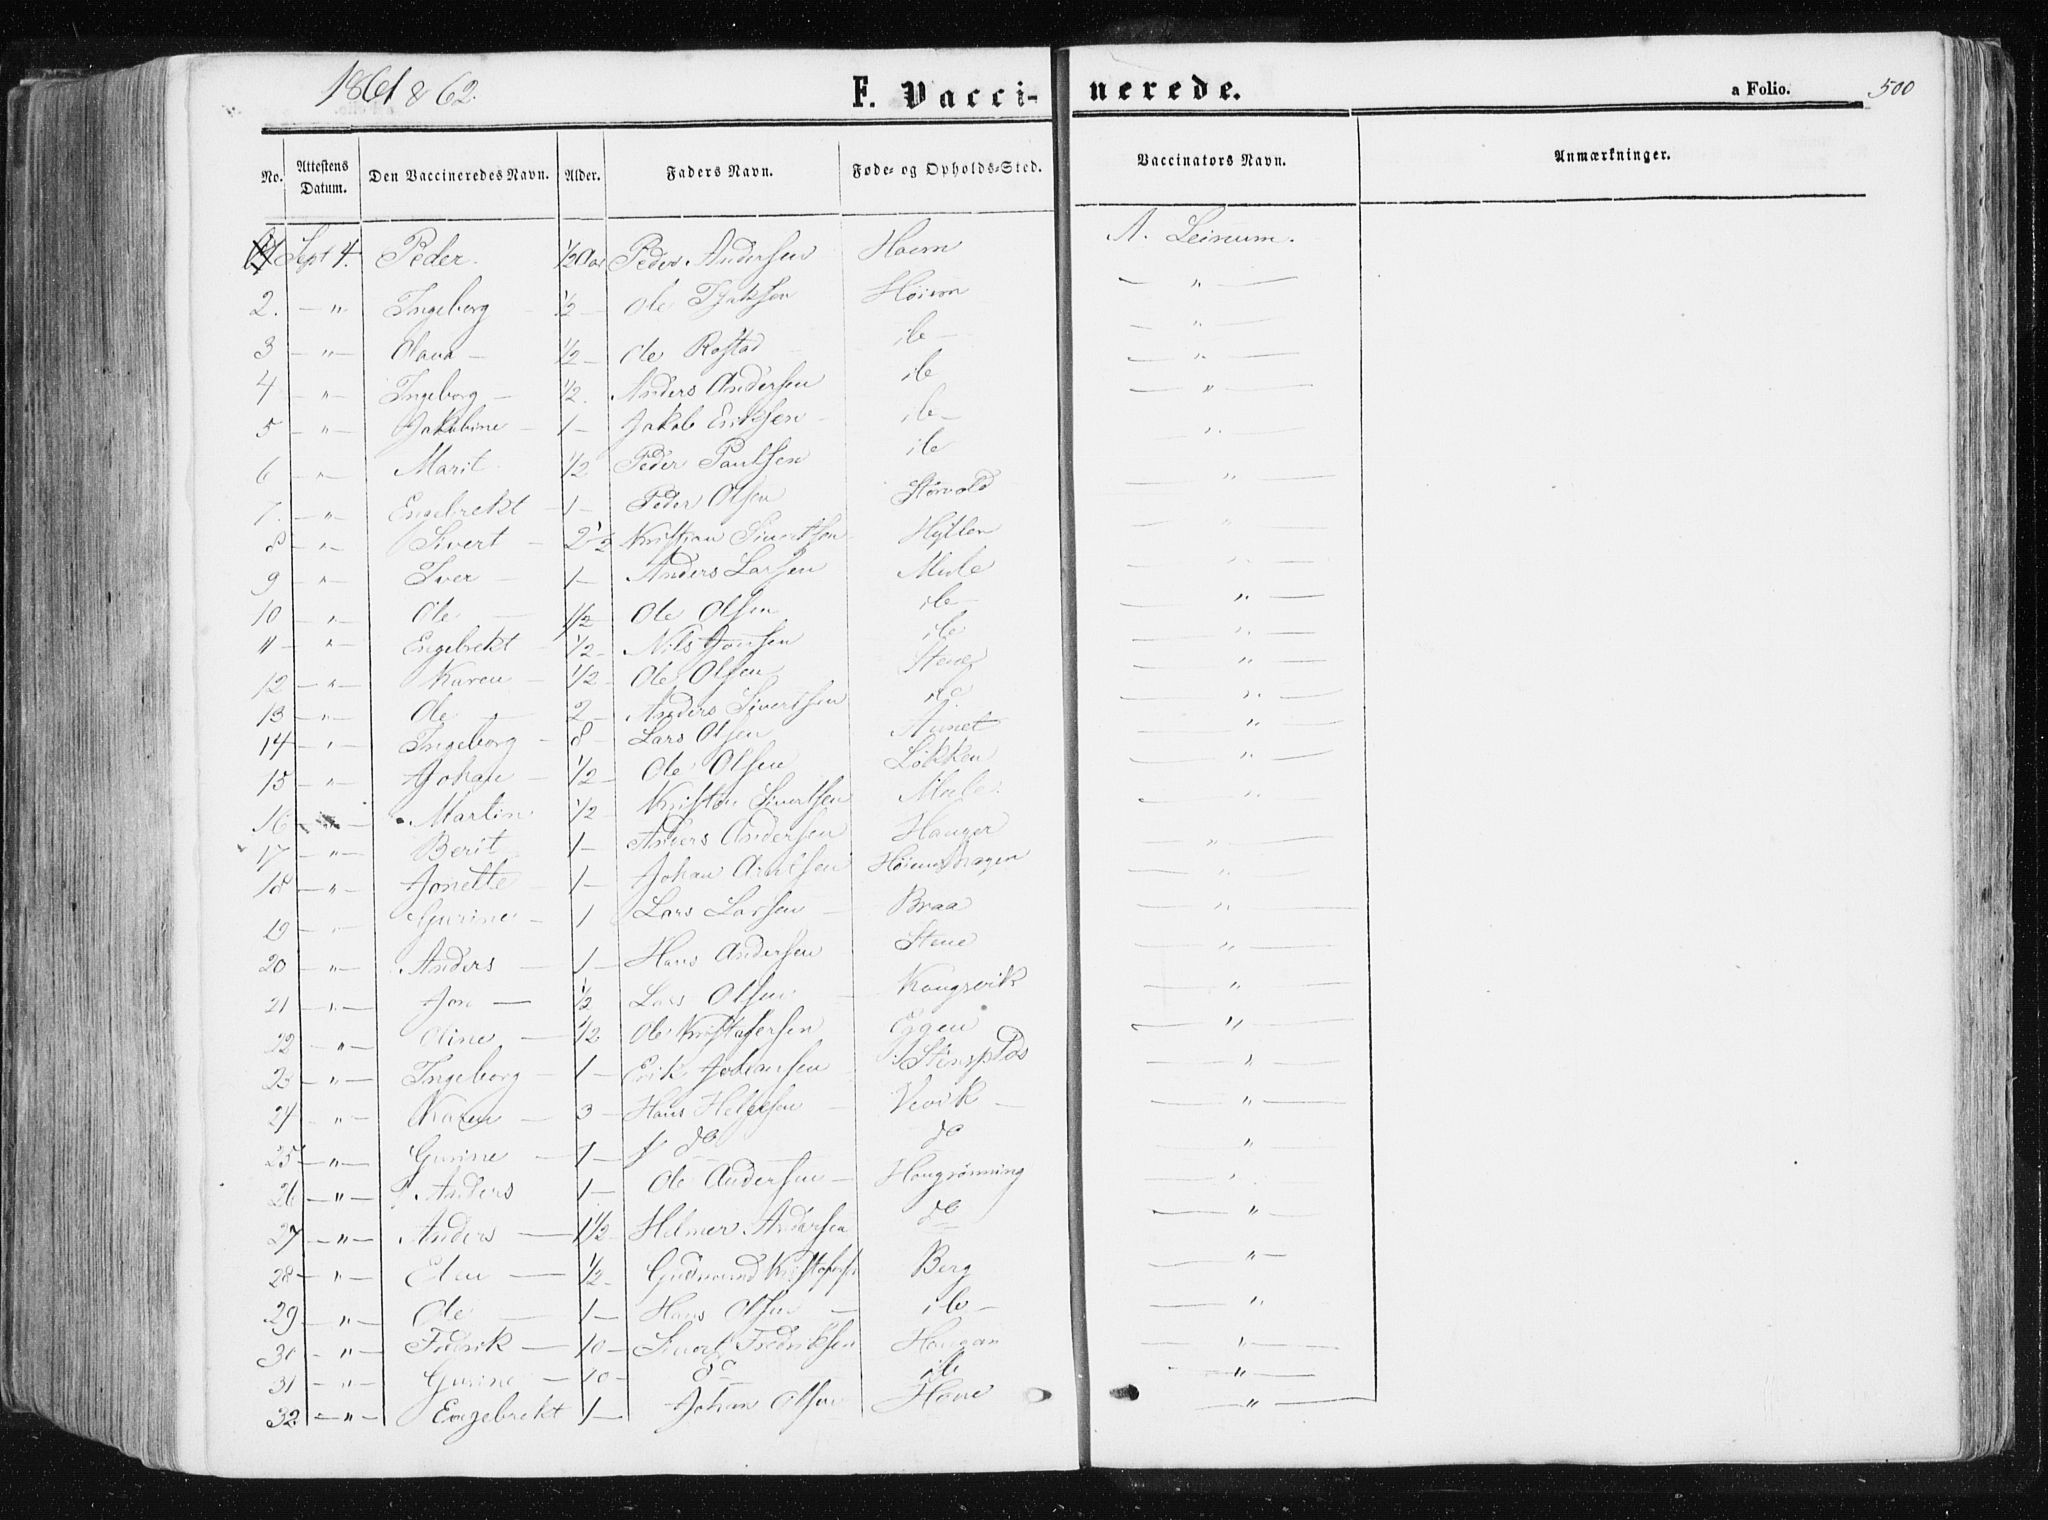 1861 & 62. F. Vaccinerede. a Folio. 500
No. Attestens Datum. Den Vaccineredes Navn. Alder. Faders Navn. Føde- og Opholds-Sted. Vaccinators Navn. Anmærkninger.
Sept 4. Peder. 1/2 Aar Peder Andersen A. Leinum.
2. — " Ingeborg 1/2 — Ole — " —
3 — " — Olava — 1/2 — Ole Rostad ib — — " —
4 — " — Ingeborg — 1/2. Anders Andersen ib — " —
5 — " — Jakobine — 1 — Jakob Eriksen — ib — — " —
6 — " — Marit 1/2 Peder Paulsen ib — " —
7. — " — Engebrekt — 1 — Peder Olsen — " —
8 — " — Sivert — 2 1/2 Kristian Sivertsen Hyllen — " —
9 — " — Iver — 1 — Anders Larsen Mule — " —
10 — " — Ole — 1/2 — Ole Olsen ib — — " —
11 — " — Engebrekt — 1/2 — Nils Jonsen ib — " —
12 — " — Karen — 1/2 — Ole Olsen Stene — " —
13 — " — Ole — 2 — Anders Sivertsen ib — " —
14 — " — Ingeborg — 8 — Lars Olsen Aunet — " —
15 — " — Johan — 1/2 — Ole Olsen Løkken — " —
16 — " — Martin 1/2 — Sivertsen Mule. — " —
17 — " — Berit — 1 — Anders Andersen Hauger — " —
18 — " — Jonette — 1 — Johan Arntsen — " —
19 — " — Gurine — 1 Lars Larsen — Braa — " —
20 — " — Anders — 1 — Hans Andersen Stene — " —
21 — " — Jon — 1/2 Lars Olsen — Kongsvik — " —
22 — " — Oline — 1/2 Ole Kristofersen Eggen — " —
23 — " — Ingeborg — 1 — Erik Johansen — — " —
24 — " — Karen — 3 — Hans Helgesen — Vevik — — " —
25 — " — Gurine — 1 — do do — " —
26 — " — Anders 1 — Ole Andersen — Haugrønning — " —
27 — " — Anders — 1 1/2 — Helmer Andersen do — " —
28 — " — Elen — 1/2 — Gudmund Kristofers Berg — " —
29 — " — Ole — 1 — Hans Olsen — ib — — " —
30 — " — Fredrik — 10 — Sivert Fredriksen Haugan — " —
31 — " — Gurine — 10 — do — ib — " —
32 — " — Engebrekt 1 — Johan Olsen — " —